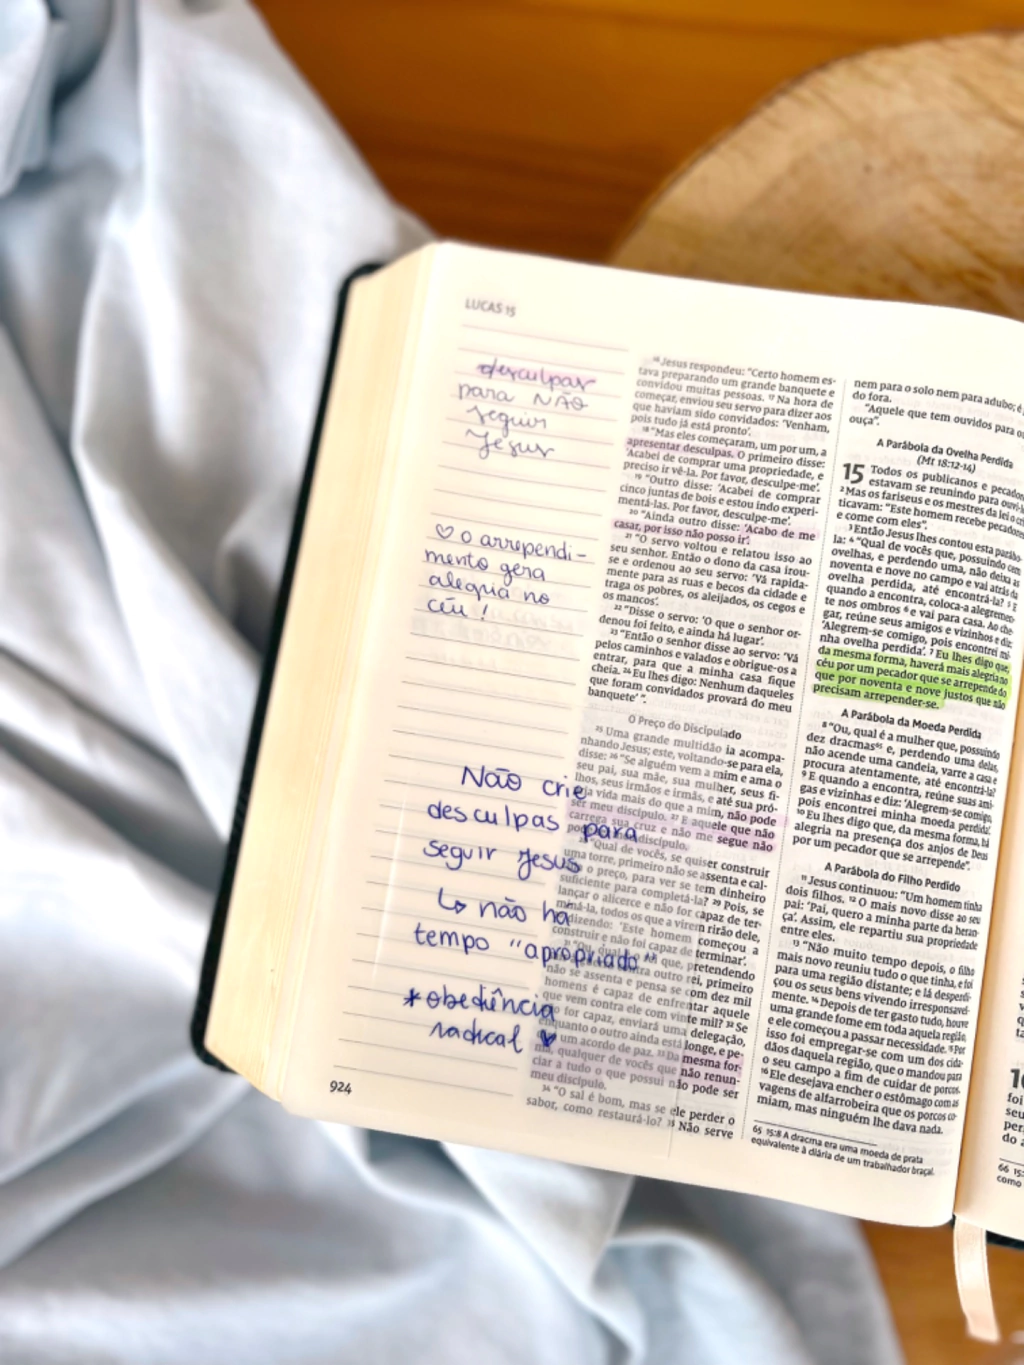 LUCAS 15
desculpas
para NÃO
seguir
Jesus
♡ o arrependi-
mento gera
alegria no
céu!
Não crie
desculpas para
seguir Jesus
↳ não há
tempo "apropriado"
*obediência
radical ♥
924
¹⁶ Jesus respondeu: "Certo homem es-
tava preparando um grande banquete e
convidou muitas pessoas. ¹⁷ Na hora de
começar, enviou seu servo para dizer aos
que haviam sido convidados: 'Venham,
pois tudo já está pronto'.
¹⁸ "Mas eles começaram, um por um, a
apresentar desculpas. O primeiro disse:
'Acabei de comprar uma propriedade, e
preciso ir vê-la. Por favor, desculpe-me'.
¹⁹ "Outro disse: 'Acabei de comprar
cinco juntas de bois e estou indo experi-
mentá-las. Por favor, desculpe-me'.
²⁰ "Ainda outro disse: 'Acabo de me
casar, por isso não posso ir'.
²¹ "O servo voltou e relatou isso ao
seu senhor. Então o dono da casa irou-
se e ordenou ao seu servo: 'Vá rapida-
mente para as ruas e becos da cidade e
traga os pobres, os aleijados, os cegos e
os mancos'.
²² "Disse o servo: 'O que o senhor or-
denou foi feito, e ainda há lugar'.
²³ "Então o senhor disse ao servo: 'Vá
pelos caminhos e valados e obrigue-os a
entrar, para que a minha casa fique
cheia. ²⁴ Eu lhes digo: Nenhum daqueles
que foram convidados provará do meu
banquete' ".
O Preço do Discipulado
²⁵ Uma grande multidão ia acompa-
nhando Jesus; este, voltando-se para ela,
disse: ²⁶ "Se alguém vem a mim e ama o
seu pai, sua mãe, sua mulher, seus fi-
lhos, seus irmãos e irmãs, e até sua pró-
vida mais do que a mim, não pode
ser meu discípulo. ²⁷ E aquele que não
carrega sua cruz e não me segue não
discípulo.
"Qual de vocês, se quiser construir
uma torre, primeiro não se assenta e cal-
o preço, para ver se tem dinheiro
suficiente para completá-la? ²⁹ Pois, se
lançar o alicerce e não for capaz de ter-
miná-la, todos os que a virem rirão dele,
dizendo: 'Este homem começou a
construir e não foi capaz de terminar'.
que, pretendendo
outro rei, primeiro
não se assenta e pensa se com dez mil
homens é capaz de enfrentar aquele
que vem contra ele com vinte mil? ³² Se
for capaz, enviará uma delegação,
enquanto o outro ainda está longe, e pe-
um acordo de paz. ³³ Da mesma for-
ma, qualquer de vocês que não renun-
ciar a tudo o que possui não pode ser
meu discípulo.
³⁴ "O sal é bom, mas se ele perder o
sabor, como restaurá-lo? ³⁵ Não serve
nem para o solo nem para adubo; é
do fora.
"Aquele que tem ouvidos para
ouça".
A Parábola da Ovelha Perdida
(Mt 18:12-14)
15 Todos os publicanos e pecadores
estavam se reunindo para ouvi-
² Mas os fariseus e os mestres da lei o
ticavam: "Este homem recebe pecadores
e come com eles".
³ Então Jesus lhes contou esta parábo-
la: ⁴ "Qual de vocês que, possuindo cem
ovelhas, e perdendo uma, não deixa as
noventa e nove no campo e vai atrás da
ovelha perdida, até encontrá-la? ⁵ E
quando a encontra, coloca-a alegremen-
te nos ombros ⁶ e vai para casa. Ao che-
gar, reúne seus amigos e vizinhos e diz:
'Alegrem-se comigo, pois encontrei mi-
nha ovelha perdida'. ⁷ Eu lhes digo que,
da mesma forma, haverá mais alegria no
céu por um pecador que se arrepende do
que por noventa e nove justos que não
precisam arrepender-se.
A Parábola da Moeda Perdida
⁸ "Ou, qual é a mulher que, possuindo
dez dracmas⁶⁵ e, perdendo uma delas,
não acende uma candeia, varre a casa e
procura atentamente, até encontrá-la?
⁹ E quando a encontra, reúne suas ami-
gas e vizinhas e diz: 'Alegrem-se comigo,
pois encontrei minha moeda perdida'.
¹⁰ Eu lhes digo que, da mesma forma, há
alegria na presença dos anjos de Deus
por um pecador que se arrepende".
A Parábola do Filho Perdido
¹¹ Jesus continuou: "Um homem tinha
dois filhos. ¹² O mais novo disse ao seu
pai: 'Pai, quero a minha parte da heran-
ça'. Assim, ele repartiu sua propriedade
entre eles.
¹³ "Não muito tempo depois, o filho
mais novo reuniu tudo o que tinha, e foi
para uma região distante; e lá desperdi-
çou os seus bens vivendo irresponsavel-
mente. ¹⁴ Depois de ter gasto tudo, houve
uma grande fome em toda aquela região,
e ele começou a passar necessidade. ¹⁵ Por
isso foi empregar-se com um dos cida-
dãos daquela região, que o mandou para
o seu campo a fim de cuidar de porcos.
¹⁶ Ele desejava encher o estômago com as
vagens de alfarrobeira que os porcos co-
miam, mas ninguém lhe dava nada.
65 15:8 A dracma era uma moeda de prata
equivalente à diária de um trabalhador braçal.
foi
seu
per
do
66 15:
como